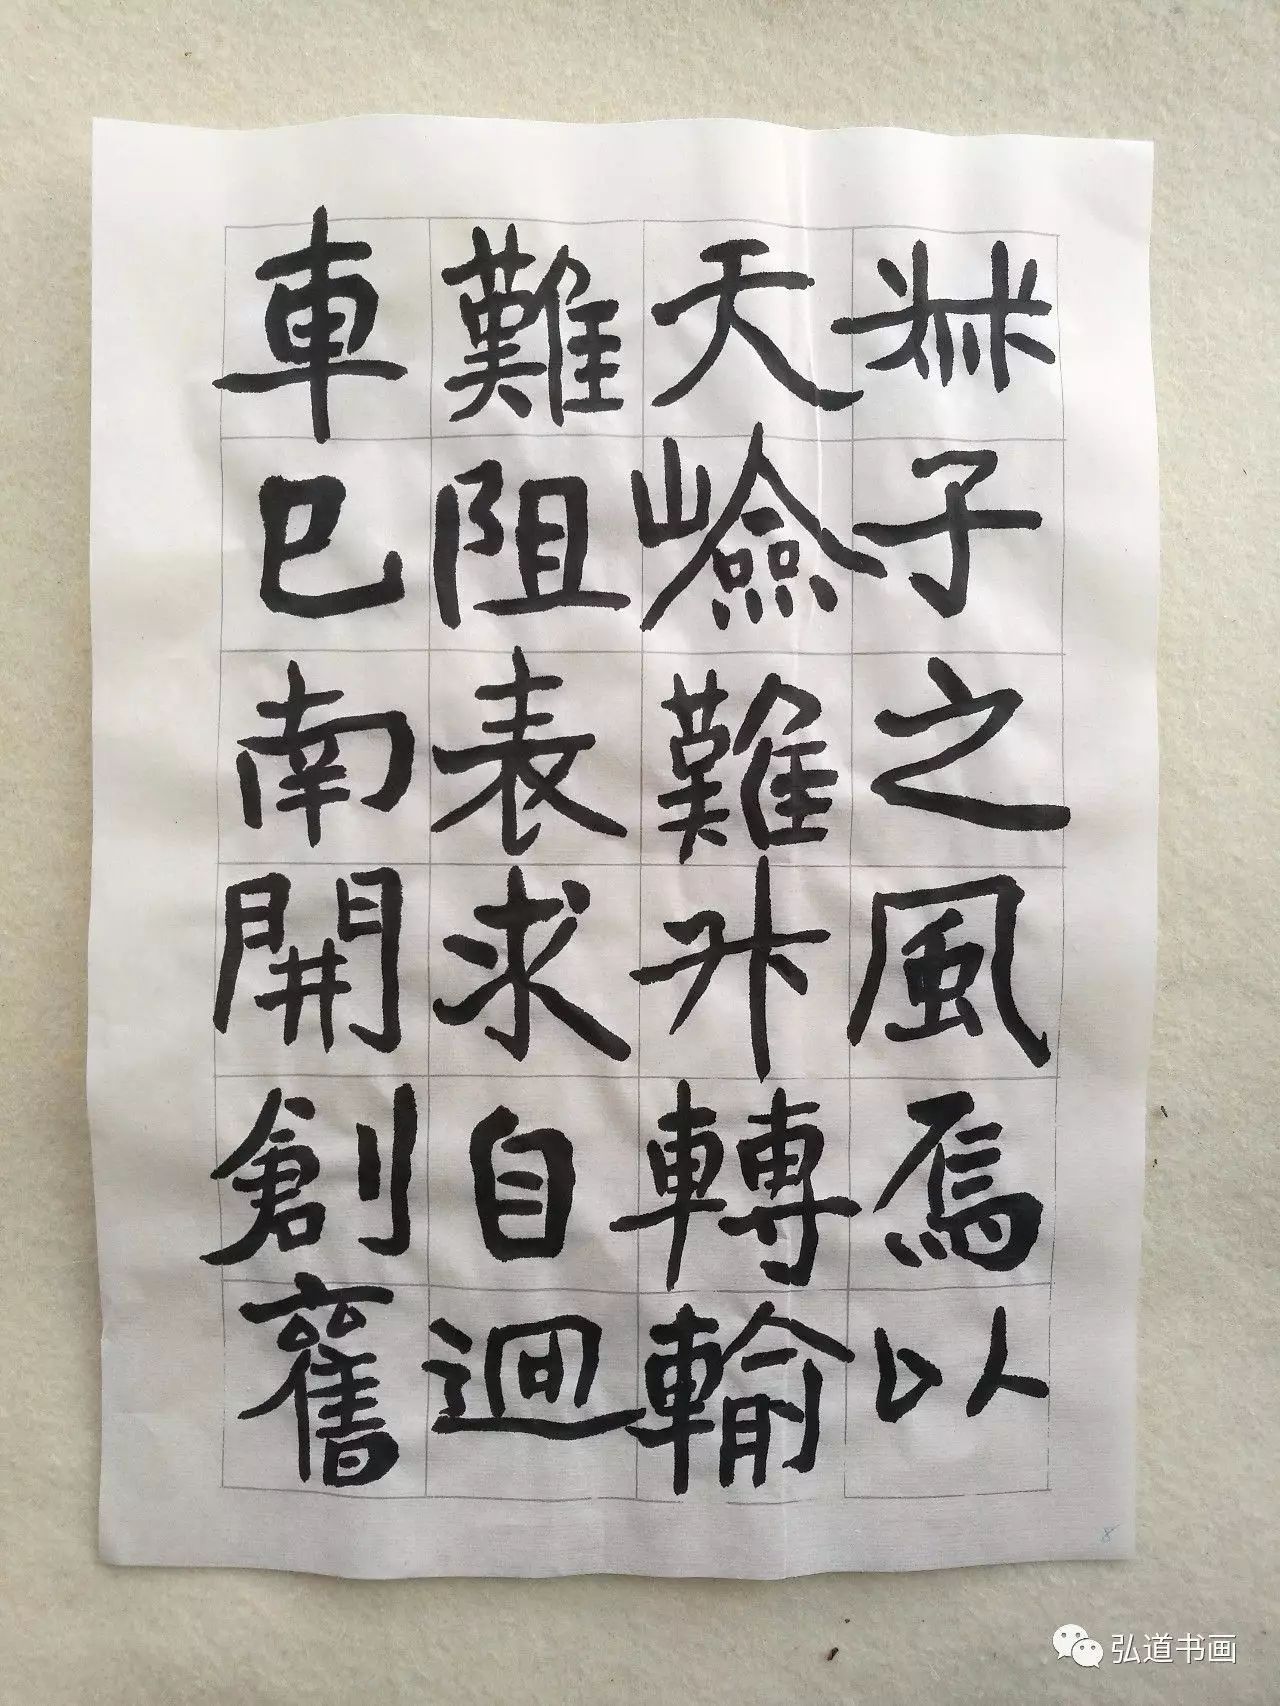 叔子之風焉以
天嶮難升轉輸
難阻表求自迴
車已南開創舊
弘道书画
8